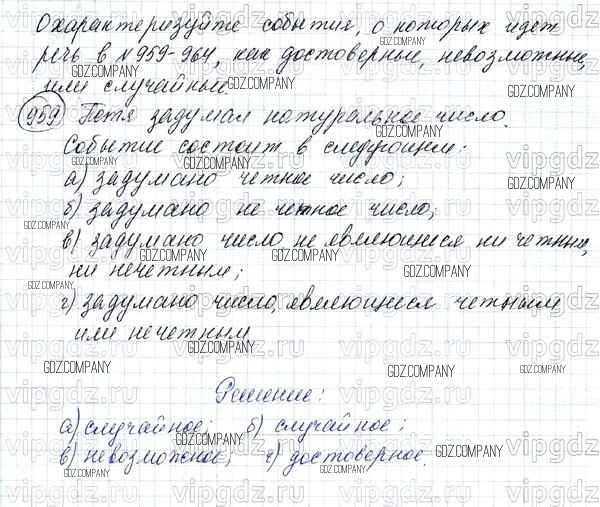 Охарактеризуйте события, о которых идет
речь в №959-964, как достоверные, невозможные,
или случайные
959 Петя задумал натуральное число.
Событие состоит в следующем:
а) задумано четное число;
б) задумано не четное число;
в) задумано число, не являющиеся ни четным,
ни нечетным;
г) задумано число, являющиеся четным
или нечетным
Решение:
а) случайное; б) случайное;
в) невозможное; г) достоверное.
GDZ.COMPANY
vipgdz.ru